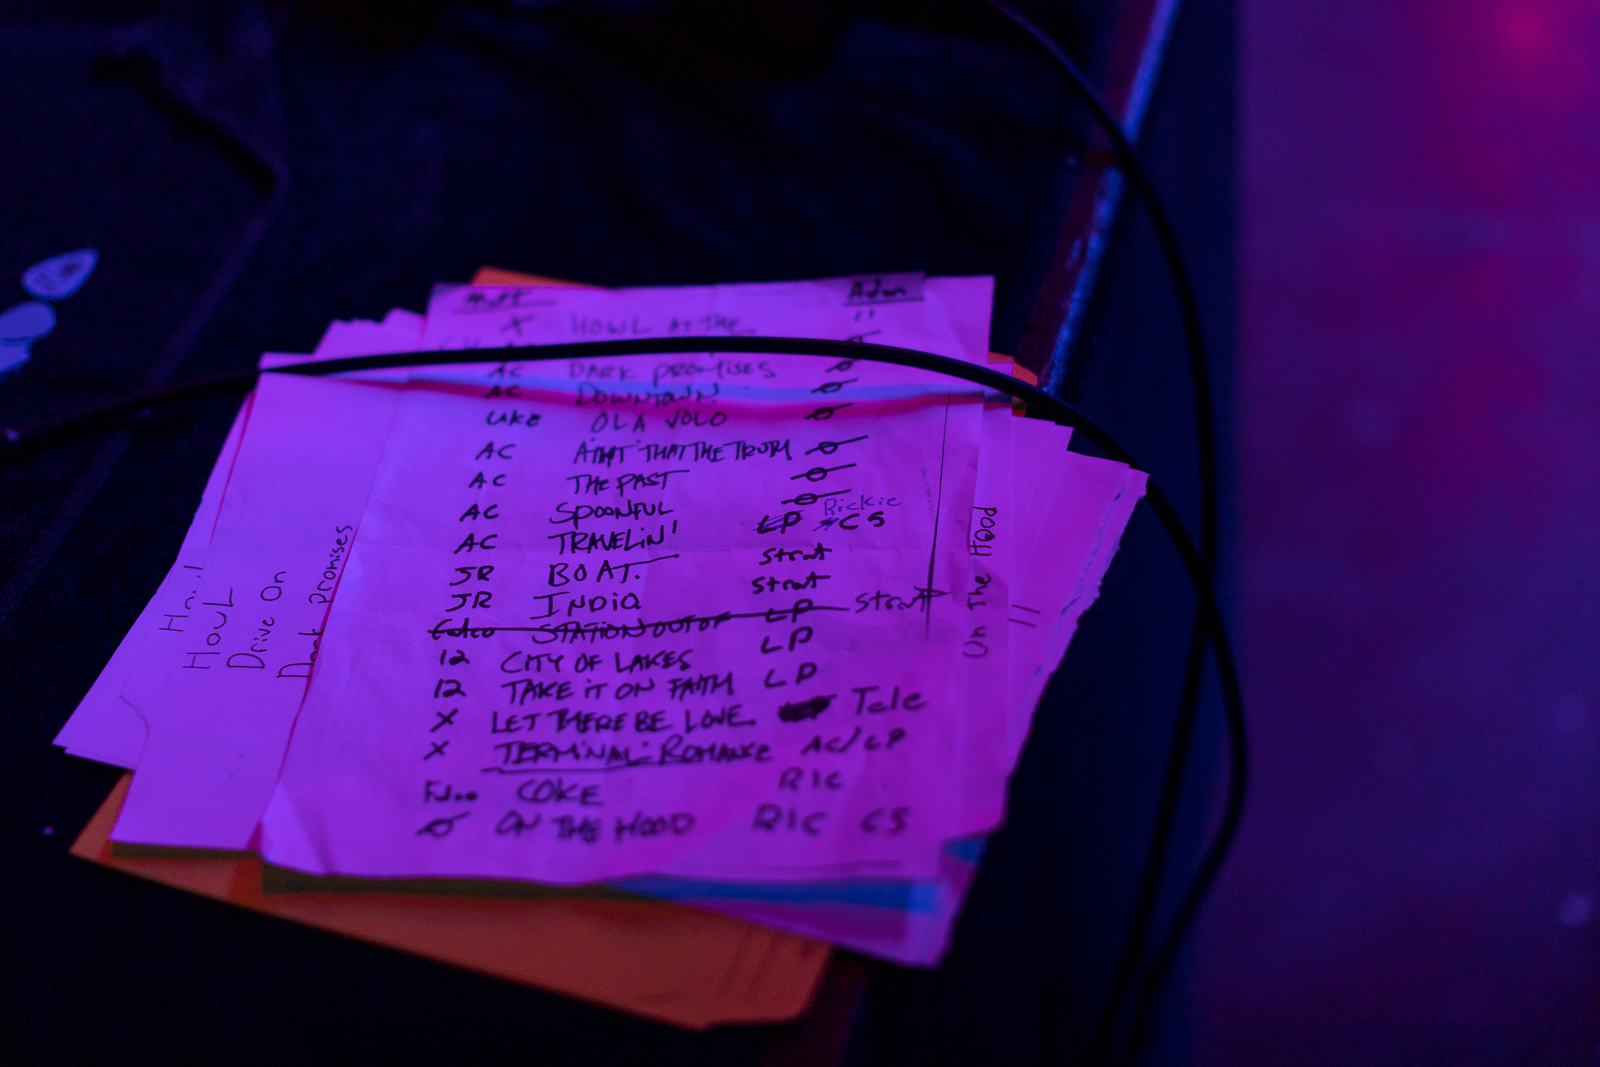 Matt Adam
X HOWL AT THE "
AC DARK PROMISES Ø
AC DOWNTOWN Ø
UKE OLA VOLO Ø
AC AIN'T THAT THE TRUTH Ø
AC THE PAST Ø
AC SPOONFUL Ø Rickie
AC TRAVELIN' LP CS
JR BOAT. Strat
JR INDIA Strat
STATION OUT OF LP Strat
12 CITY OF LAKES LP
12 TAKE IT ON FAITH LP
X LET THERE BE LOVE Tele
X TERMINAL ROMANCE AC/LP
COKE RIC
Ø ON THE HOOD RIC CS
Howl
Drive On
Dark promises
On The Hood